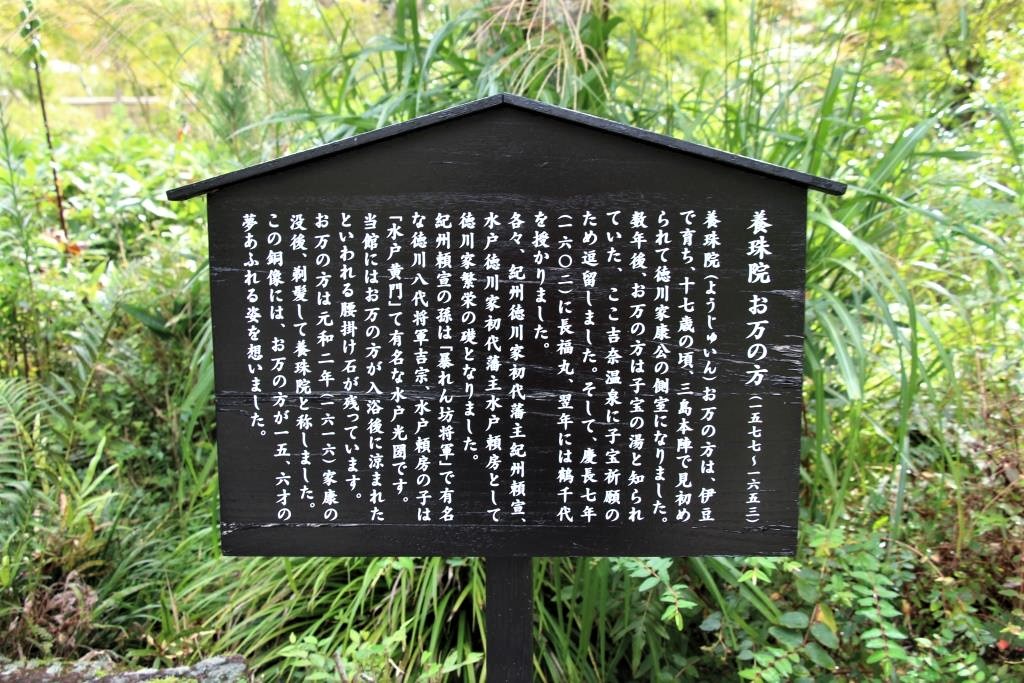 養珠院 お万の方(一五七七〜一六五三)
養珠院(ようじゅいん)お万の方は、伊豆
で育ち、十七歳の頃、三島本陣で見初め
られて徳川家康公の側室になりました。
数年後、お万の方は子宝の湯と知られ
ていた、ここ吉奈温泉に子宝祈願の
ため逗留しました。そして、慶長七年
(一六〇二)に長福丸、翌年には鶴千代
を授かりました。
各々、紀州徳川家初代藩主紀州頼宣、
水戸徳川家初代藩主水戸頼房として
徳川家繁栄の礎となりました。
紀州頼宣の孫は「暴れん坊将軍」で有名
な徳川八代将軍吉宗、水戸頼房の子は
「水戸黄門」で有名な水戸光圀です。
当館にはお万の方が入浴後に涼まれた
といわれる腰掛け石が残っています。
お万の方は元和二年(一六一六)家康の
没後、剃髪して養珠院と称しました。
この銅像には、お万の方が一五、六才の
夢あふれる姿を想いました。